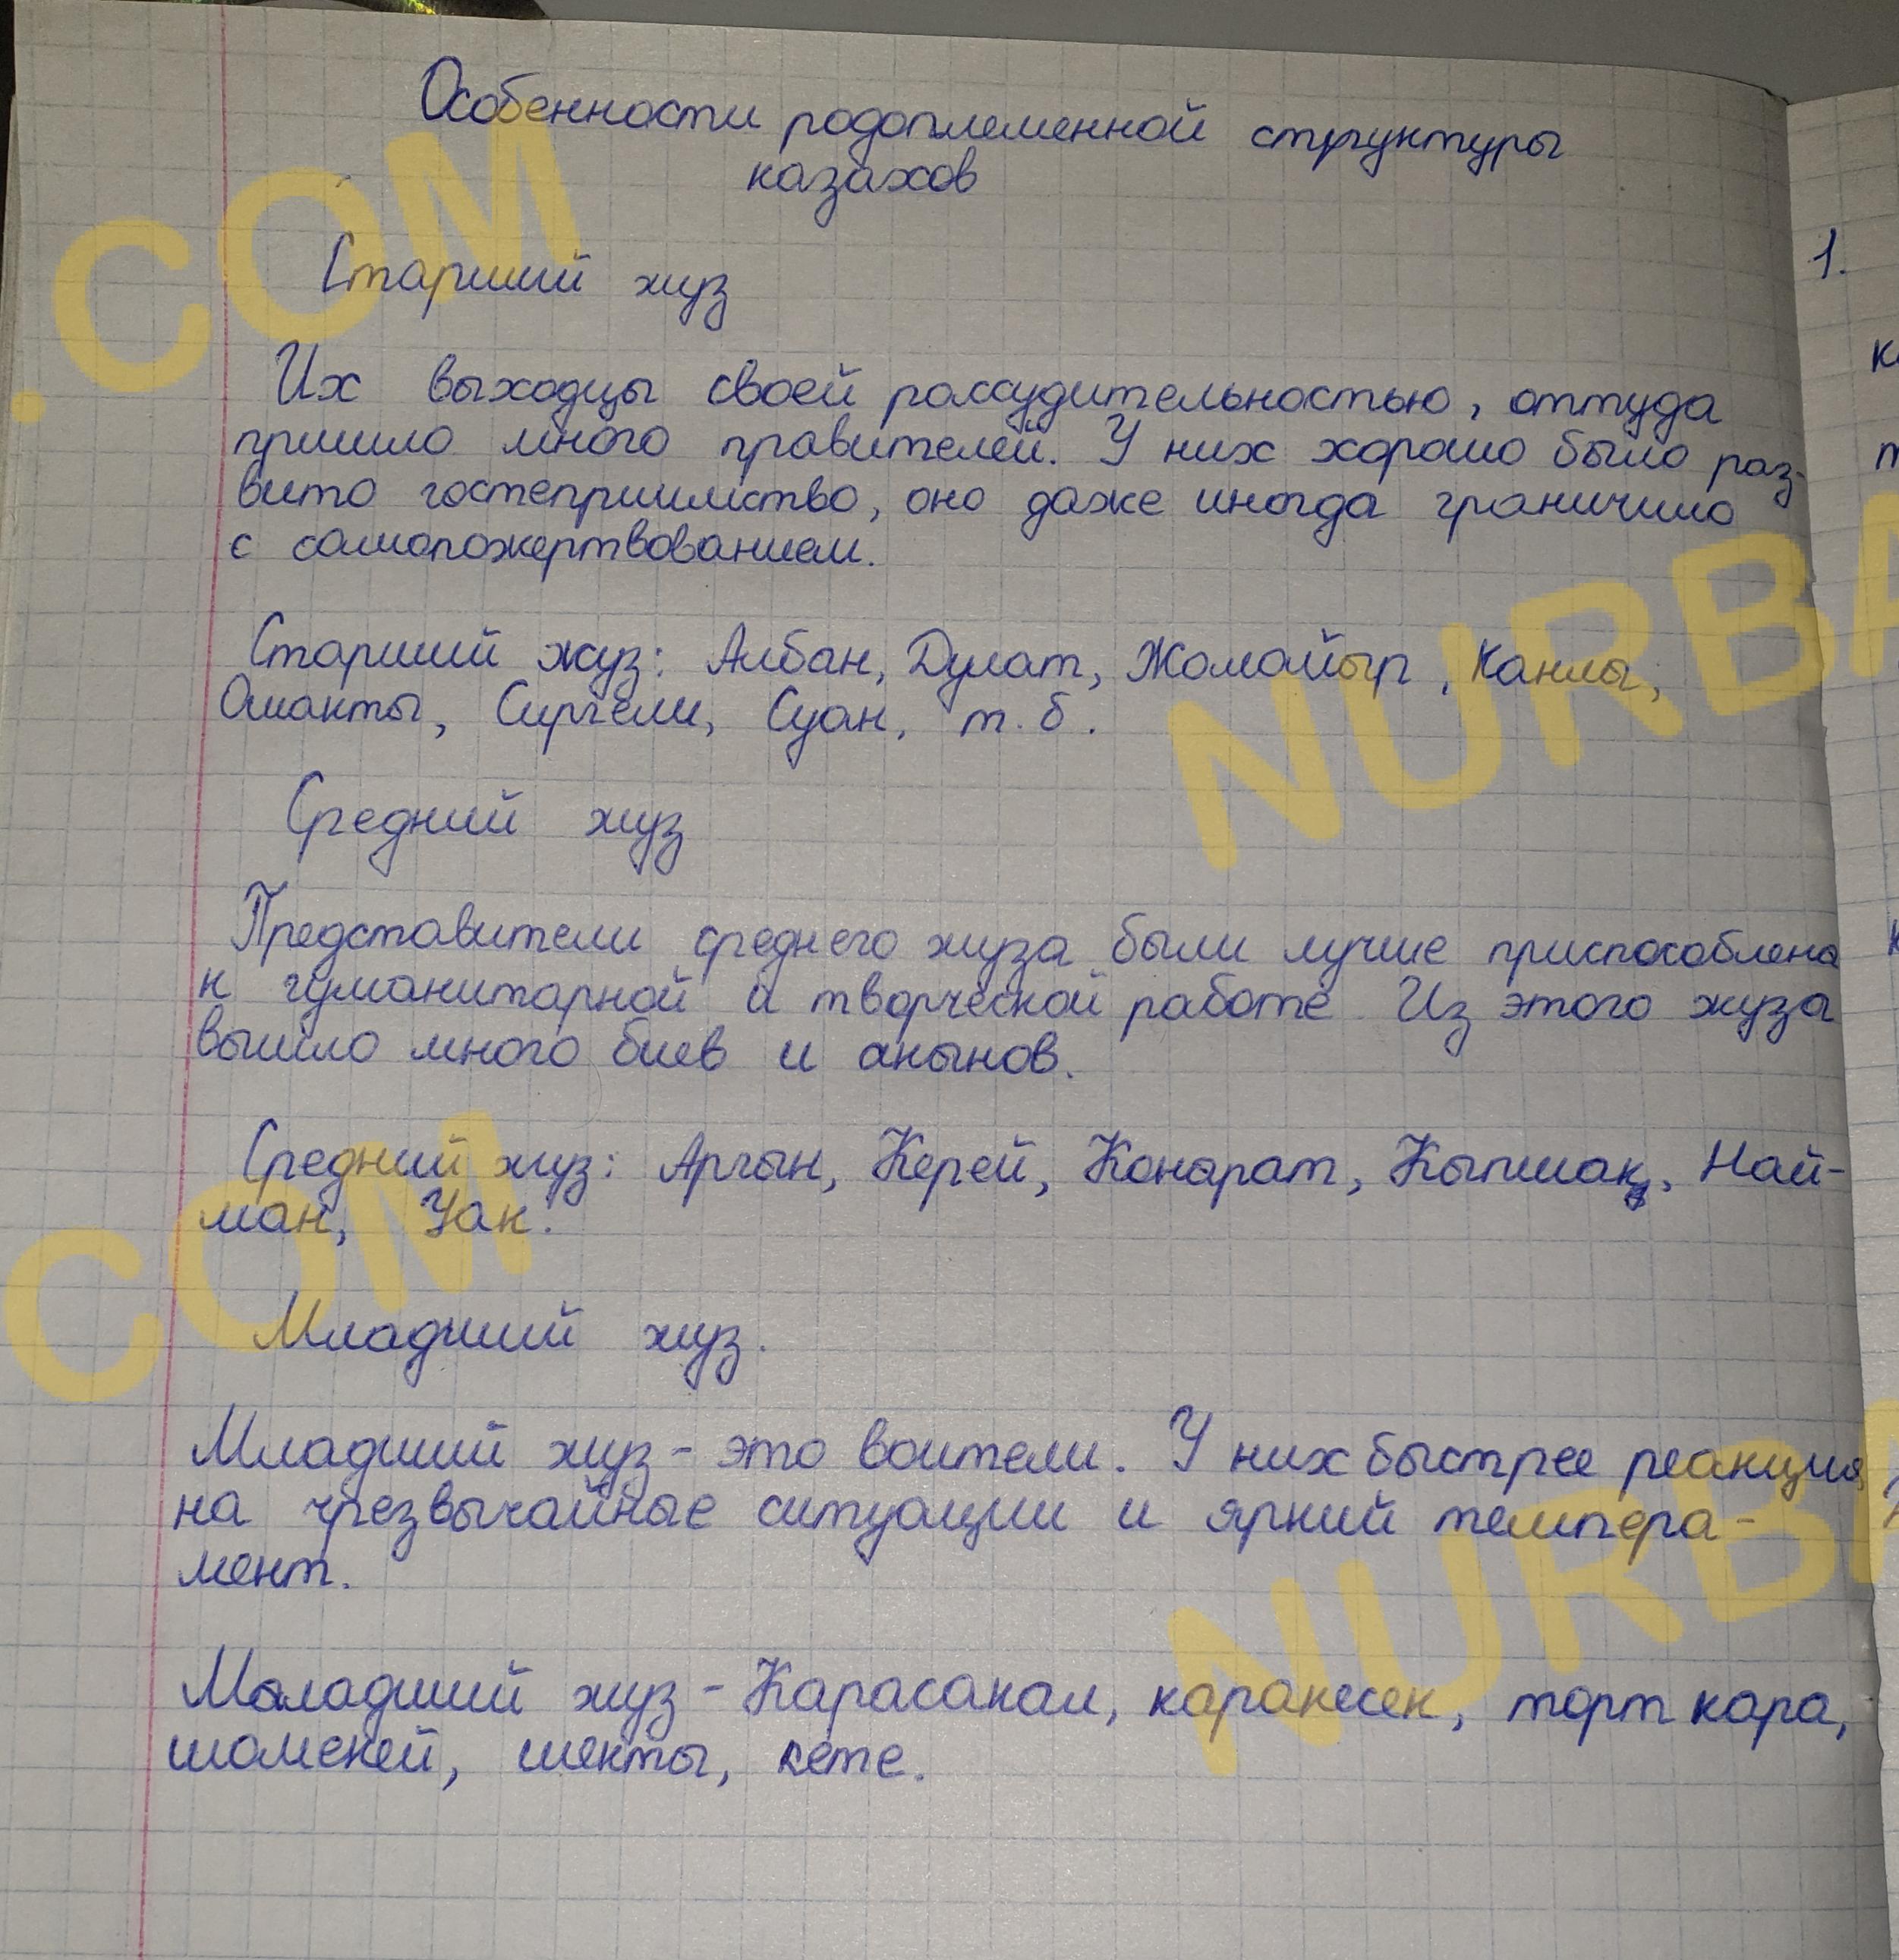 Особенности родоплеменной структуры
казахов
Старший жуз
Их выходцы своей рассудительностью, оттуда
пришло много правителей. У них хорошо было раз-
вито гостеприимство, оно даже иногда граничило
с самопожертвованием.
Старший жуз: Албан, Дулат, Жалайыр, Канлы,
Ошакты, Сиргели, Суан, т.б.
Средний жуз
Представители среднего жуза были лучше приспособлена
к гуманитарной и творческой работе Из этого жуза
вышло много биев и акынов.
Средний жуз: Аргын, Керей, Конарат, Кыпшақ, Най-
ман, Уак.
Младший жуз.
Младший жуз - это воители. У них быстрее реакция
на чрезвычайные ситуации и яркий темпера-
мент.
Маладший жуз - Карасакал, каракесек, торт кара,
шомекей, шекты, кете.
1.
.COM
NURBA
COM
NURBA